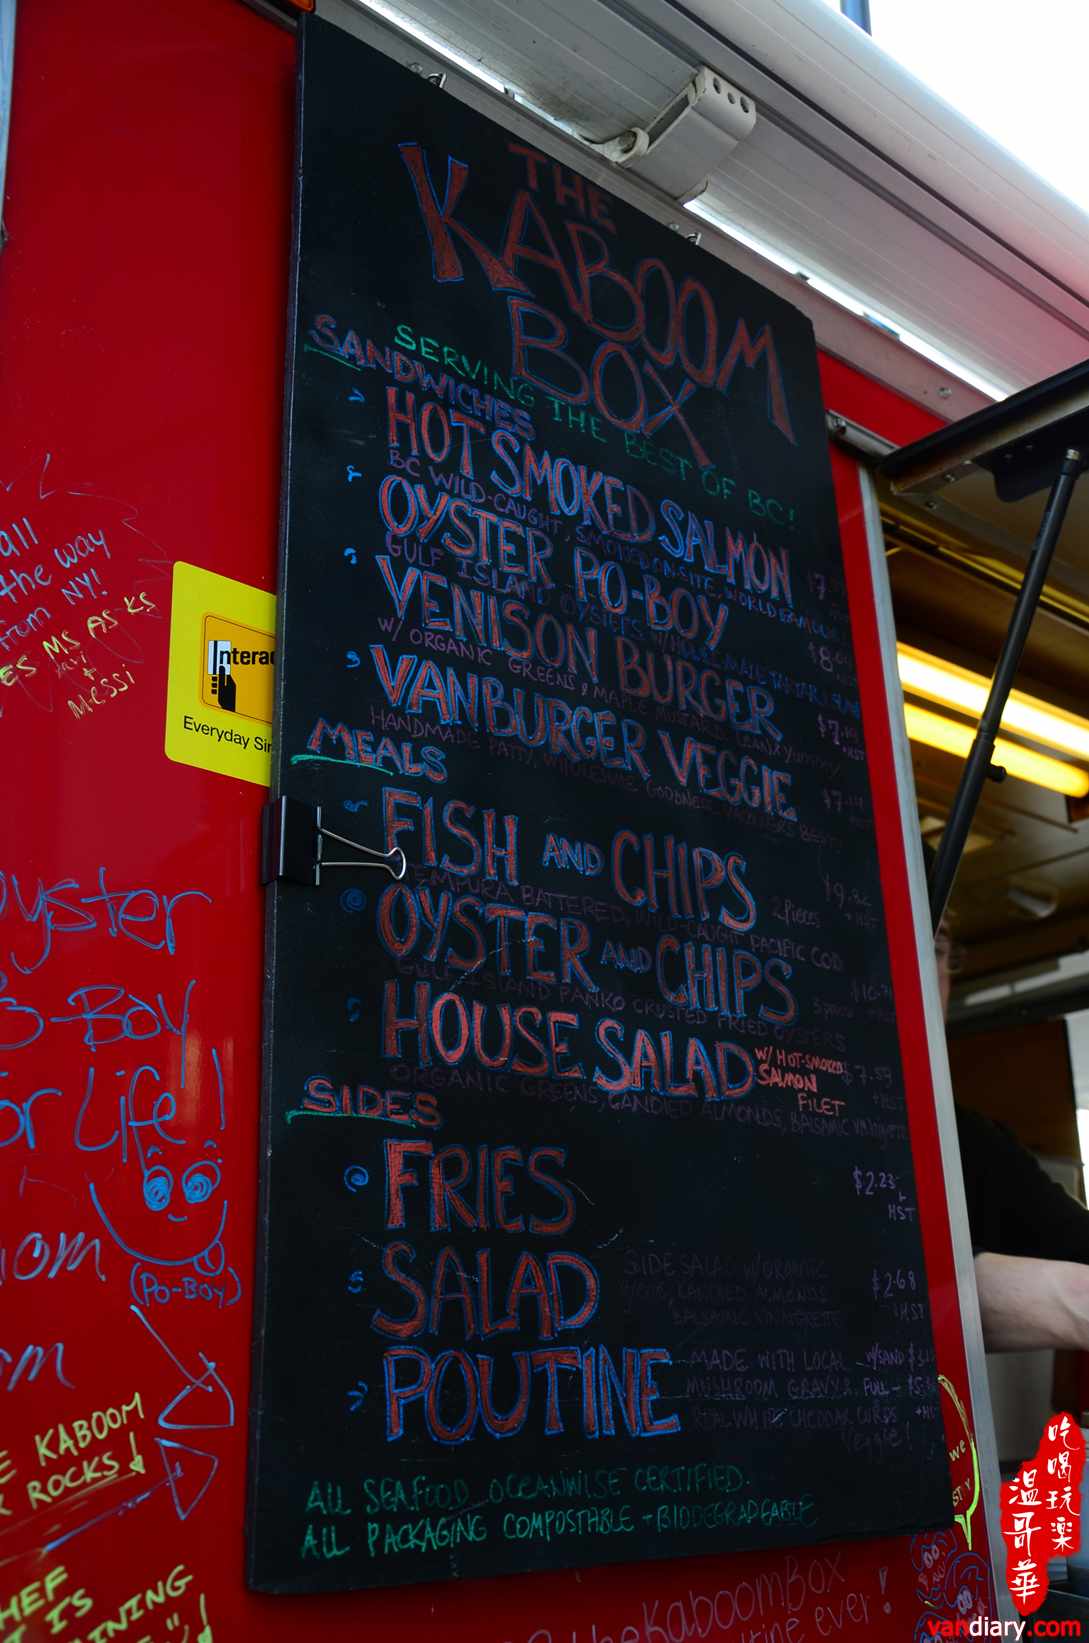 THE
KABOOM
BOX
SERVING THE BEST OF BC!
SANDWICHES
HOT SMOKED SALMON
BC WILD-CAUGHT, SMOKED ON SITE, WORLD FAMOUS
OYSTER PO-BOY
GULF ISLAND OYSTERS
VENISON BURGER
W/ ORGANIC GREENS & MAPLE MUSTARD
VANBURGER VEGGIE
HANDMADE PATTY, WHOLESOME GOODNESS
MEALS
FISH AND CHIPS 2 PIECES
TEMPURA BATTERED, WILD-CAUGHT PACIFIC COD
OYSTER AND CHIPS
GULF ISLAND PANKO CRUSTED FRIED OYSTERS
HOUSE SALAD W/ HOT-SMOKED SALMON FILET $7.59 +HST
ORGANIC GREENS, CANDIED ALMONDS, BALSAMIC
SIDES
FRIES $2.23 + HST
SALAD $2.68 +HST
SIDE SALAD W/ ORGANIC
CANDIED ALMONDS
BALSAMIC VINAIGRETTE
POUTINE
MADE WITH LOCAL
MUSHROOM GRAVY & FULL -
CHEDDAR CURDS
Veggie!
ALL SEAFOOD OCEANWISE CERTIFIED.
ALL PACKAGING COMPOSTABLE + BIODEGRADEABLE
all
the way
from NY!
MS AS KS
Messi
Interac
Everyday Si
Oyster
-Boy
or Life!
(PO-BOY)
KABOOM
ROCKS!
HEF
IS
theKaboomBox
ever!
we
吃喝玩樂
溫哥華
vandiary.com